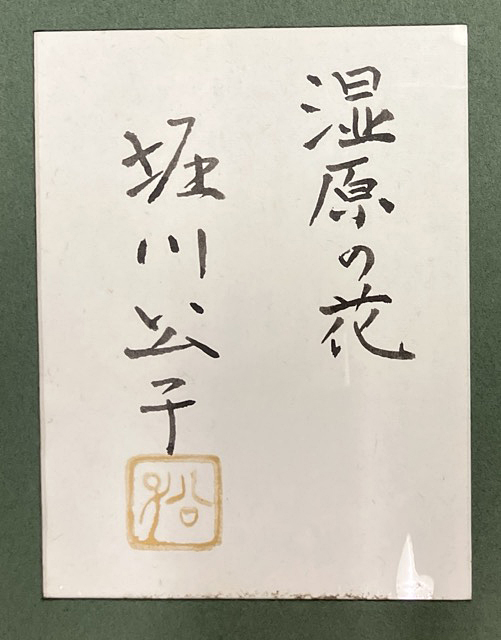 湿原の花
堀川公子